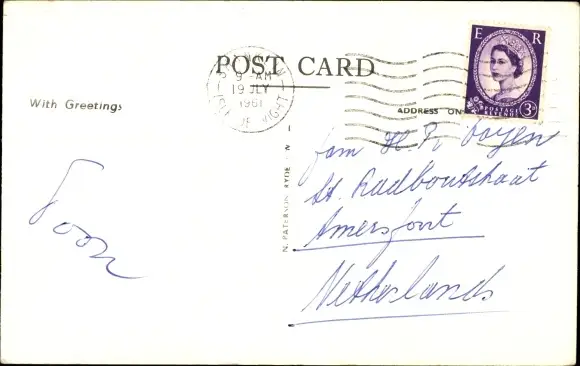 E R
POST CARD
9 - AM
19 JLY
1961
ISLE OF WIGHT
POSTAGE
REVENUE
3D
With Greetings
ADDRESS ON
fam H. R.
St. Radboutstraat
Amersfoort
Netherlands
Toon
N. PATERSON, RYDE, I.W.